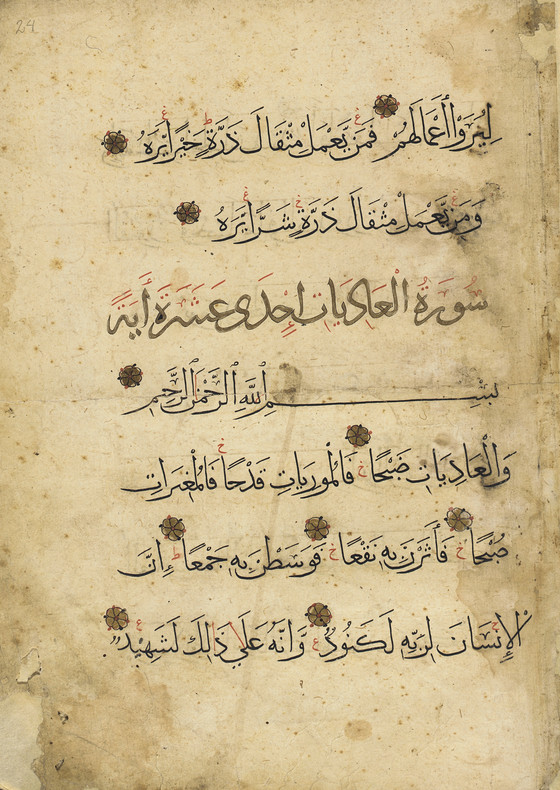 24
لِيُرَوْا أَعْمَالَهُمْ فَمَن يَعْمَلْ مِثْقَالَ ذَرَّةٍ خَيْرًا يَرَهُ
وَمَن يَعْمَلْ مِثْقَالَ ذَرَّةٍ شَرًّا يَرَهُ
سُورَةُ الْعَادِيَاتِ إِحْدَى عَشَرَةَ أَيَةً
بِسْمِ اللَّهِ الرَّحْمَٰنِ الرَّحِيمِ
وَالْعَادِيَاتِ ضَبْحًا فَالْمُورِيَاتِ قَدْحًا فَالْمُغِيرَاتِ
صُبْحًا فَأَثَرْنَ بِهِ نَقْعًا فَوَسَطْنَ بِهِ جَمْعًا إِنَّ
الْإِنسَانَ لِرَبِّهِ لَكَنُودٌ وَإِنَّهُ عَلَى ذَٰلِكَ لَشَهِيدٌ